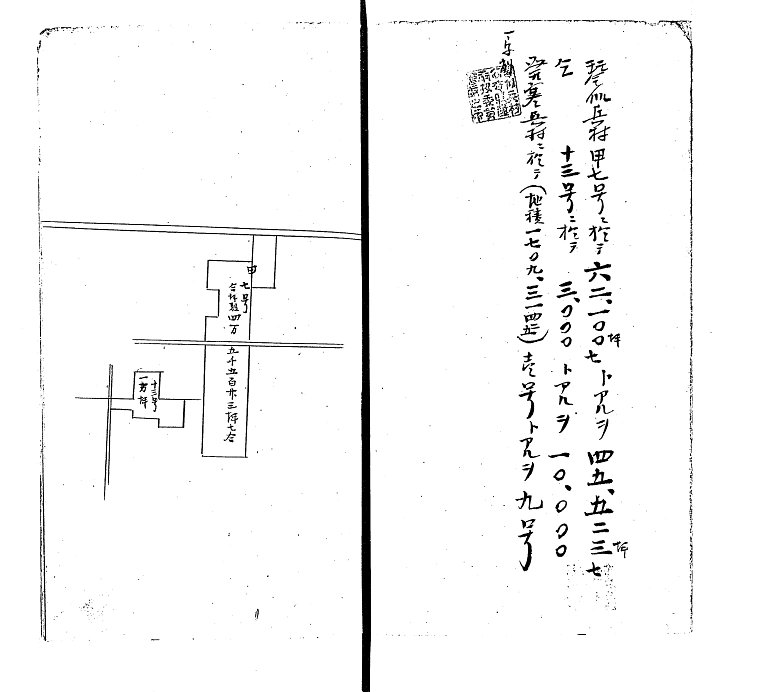 琴似兵村甲七号ニ於テ六二、一〇〇坪七トアルヲ四五、五二三坪七
仝 十三号ニ於テ 三、〇〇〇トアルヲ一〇、〇〇〇
兵村ニ於テ(地積一七〇九、三一四坪)壱号トアルヲ九号
甲七号
四万
五千五百廿三坪七合
十三号
一万坪